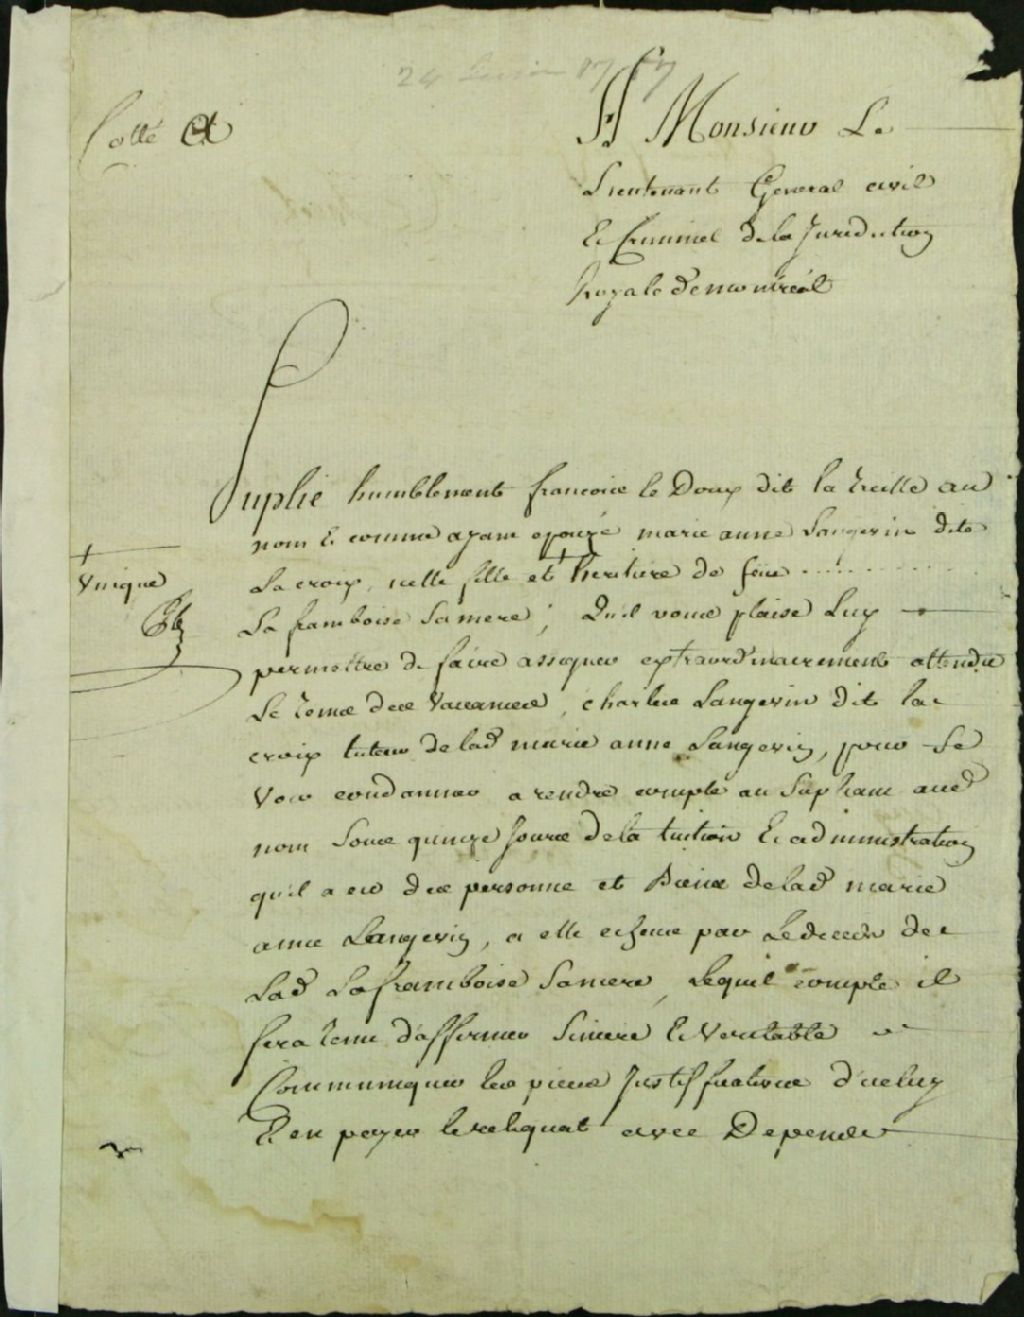 24
Cotté A
A Monsieur Le
Lieutenant General civil
Et Criminel de la Juridiction
Royale de montréal
Suplie humblement francois le Doux dit la treille au
nom et comme ayant epouzé marie anne Langevin dite
Lacroix, icelle fille et + heritiere de feue ...........
+
Vnique
La framboise Sa mere ; Qu'il vous plaise Luy
permettre de faire assigner extraordinairement attendu
le tems des Vacances, charles Langevin dit la
croix tuteur de lad marie anne Langevin, pour Se
Voir condamner a rendre compte au Supliant aud
nom Sous quinze jours de la tution Et administration
qu'il a eu des personne et Biens de lad marie
anne Langevin, a elle echeue par Le deceds de
Lad Laframboise Sa mere, Lequel compte il
Sera tenu d'affirmer Sincere Et Veritable
Communiquer les pieces Justifficatives d'iceluy
Et en payer le reliquat avec Depends